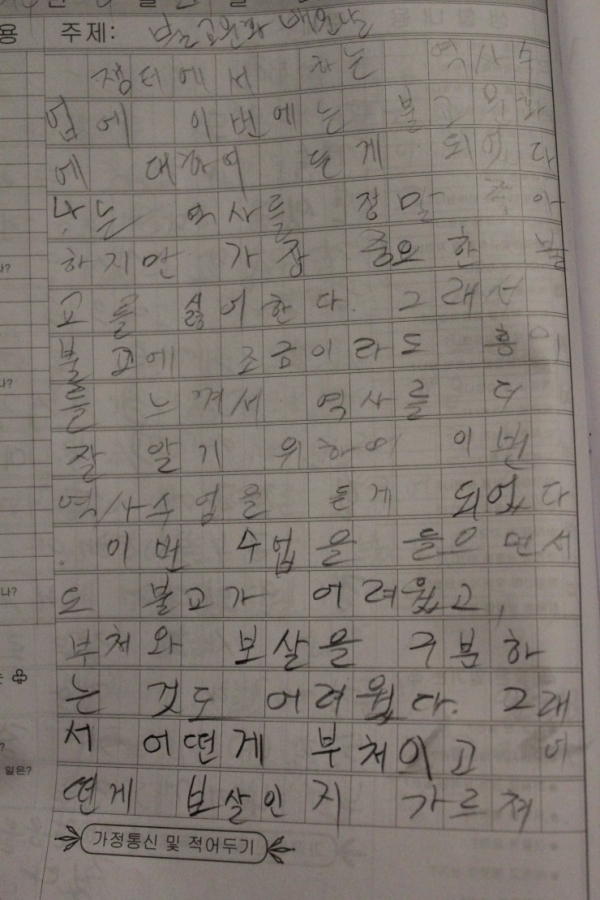 주제: 불교문화 배운날
쟁터에서 하는 역사수
업에 이번에는 불교문화
에 대하여 듣게 되었다
나는 역사를 정말 좋아
하지만 가장 중요한 불
교를 싫어한다. 그래서
불교에 조금이라도 흥미
를 느껴서 역사를 더
잘 알기 위하여 이번
역사수업을 듣게 되었다
. 이번 수업을 들으면서
도 불교가 어려웠고,
부처와 보살을 구분하
는 것도 어려웠다. 그래
서 어떤게 부처이고 어
떤게 보살인지 가르쳐
가정통신 및 적어두기
일은?